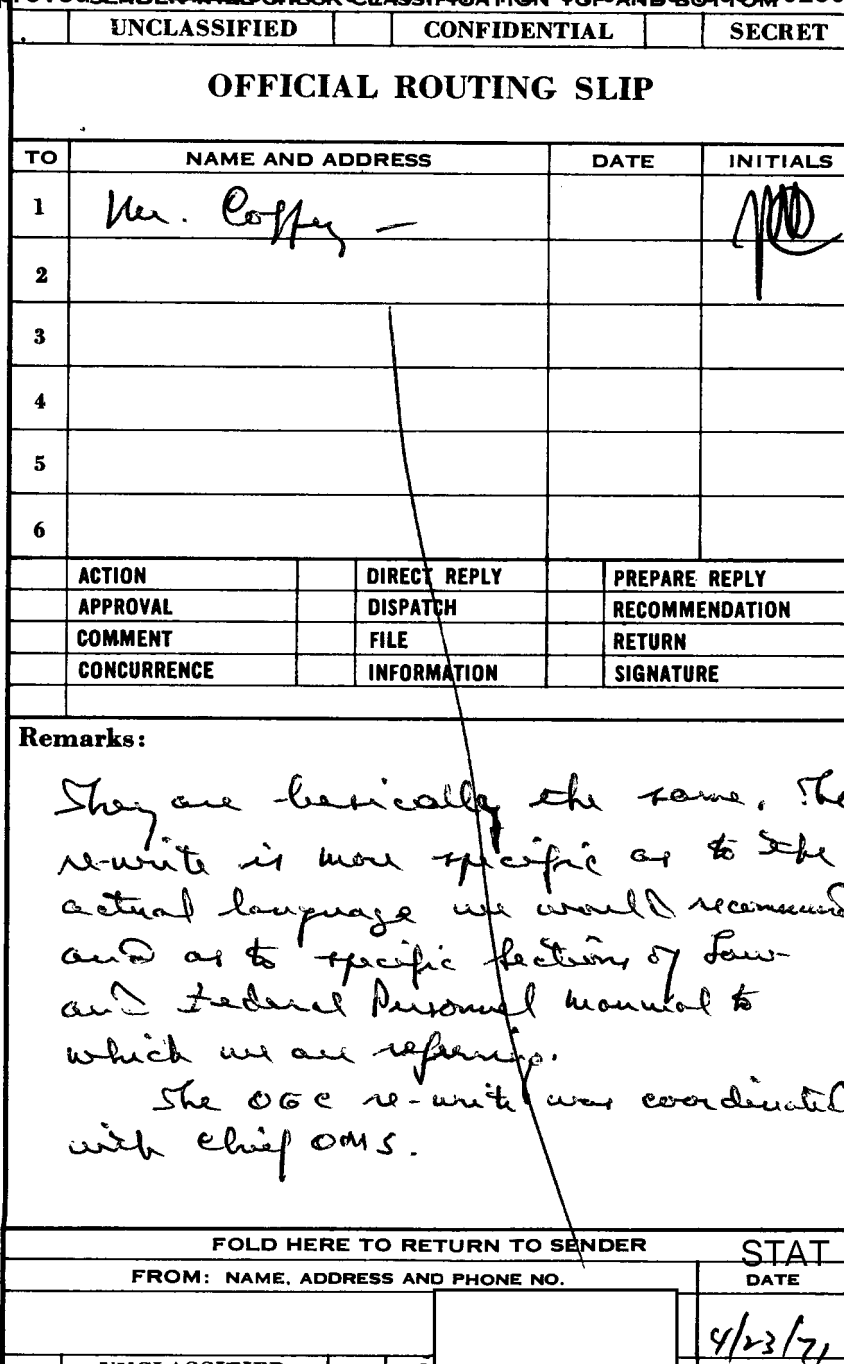 SENDER WILL CHECK CLASSIFICATION TOP AND BOTTOM
UNCLASSIFIED CONFIDENTIAL SECRET
OFFICIAL ROUTING SLIP
TO NAME AND ADDRESS DATE INITIALS
1 Mr. Coffey —
2
3
4
5
6
ACTION DIRECT REPLY PREPARE REPLY
APPROVAL DISPATCH RECOMMENDATION
COMMENT FILE RETURN
CONCURRENCE INFORMATION SIGNATURE
Remarks:
They are basically the same. The
re-write is more specific as to the
actual language we would recommend
and as to specific sections of Law
and Federal Personnel Manual to
which we are referring.
The OGC re-write was coordinated
with Chief OMS.
FOLD HERE TO RETURN TO SENDER
STAT
FROM: NAME, ADDRESS AND PHONE NO. DATE
4/23/71
UNCLASSIFIED